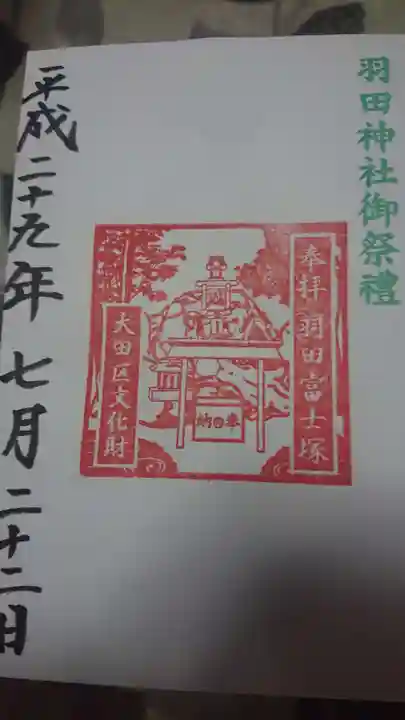 羽田神社御祭禮
奉拝 羽田富士塚
奉納
大田区文化財
平成二十九年七月二十二日